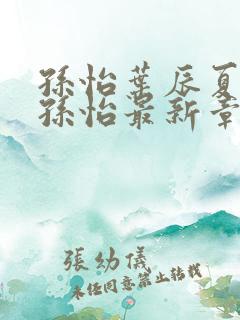 孫怡葉辰夏
孫怡最新章
張幼儀
未经同意禁止转载